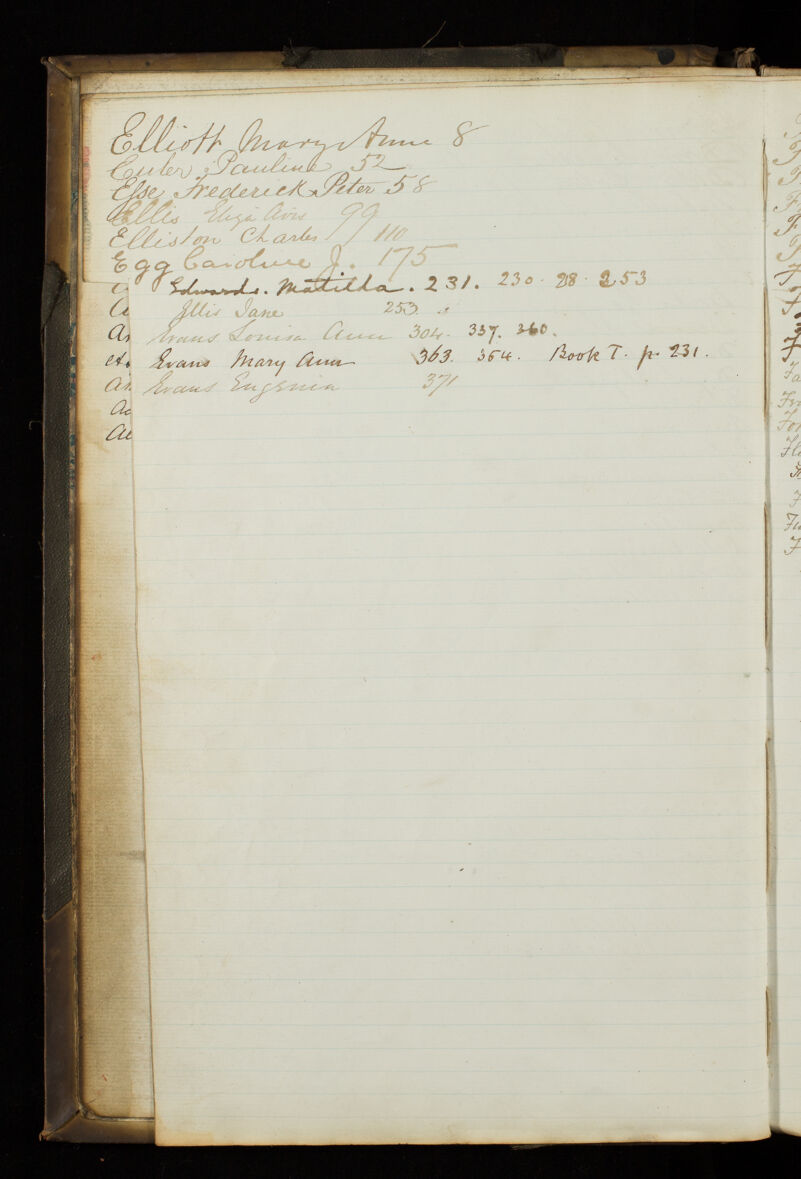 Elliott Mary Anne 8
Euler Pauline 52
Esse Frederick Peter 58
Ellis Eliza Avis 99
Elliston Charles 110
Egg Caroline J. 175
Edwards. Matilda. 231. 230. 253
Ellis Jane 253
Evans Louisa Ann 304. 337. 360.
Evans Mary Ann 363. 364. Book T. p. 231.
Evans Eugenia 371